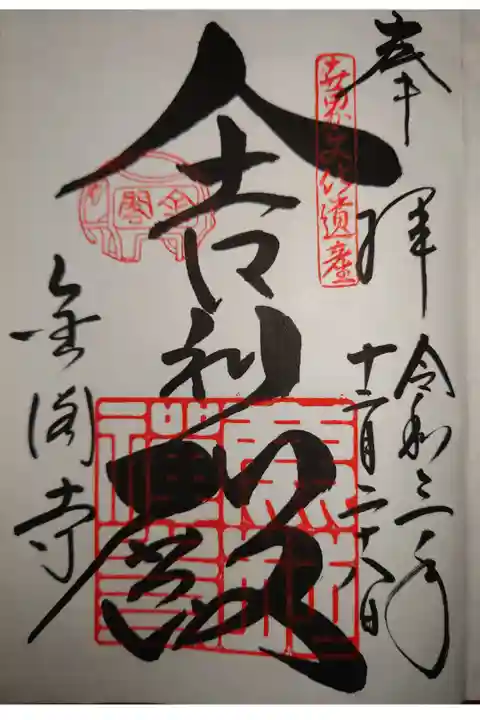 奉拝
令和三年
十二月二十八日
世界文化遺産
舎利殿
金閣寺
金閣寺